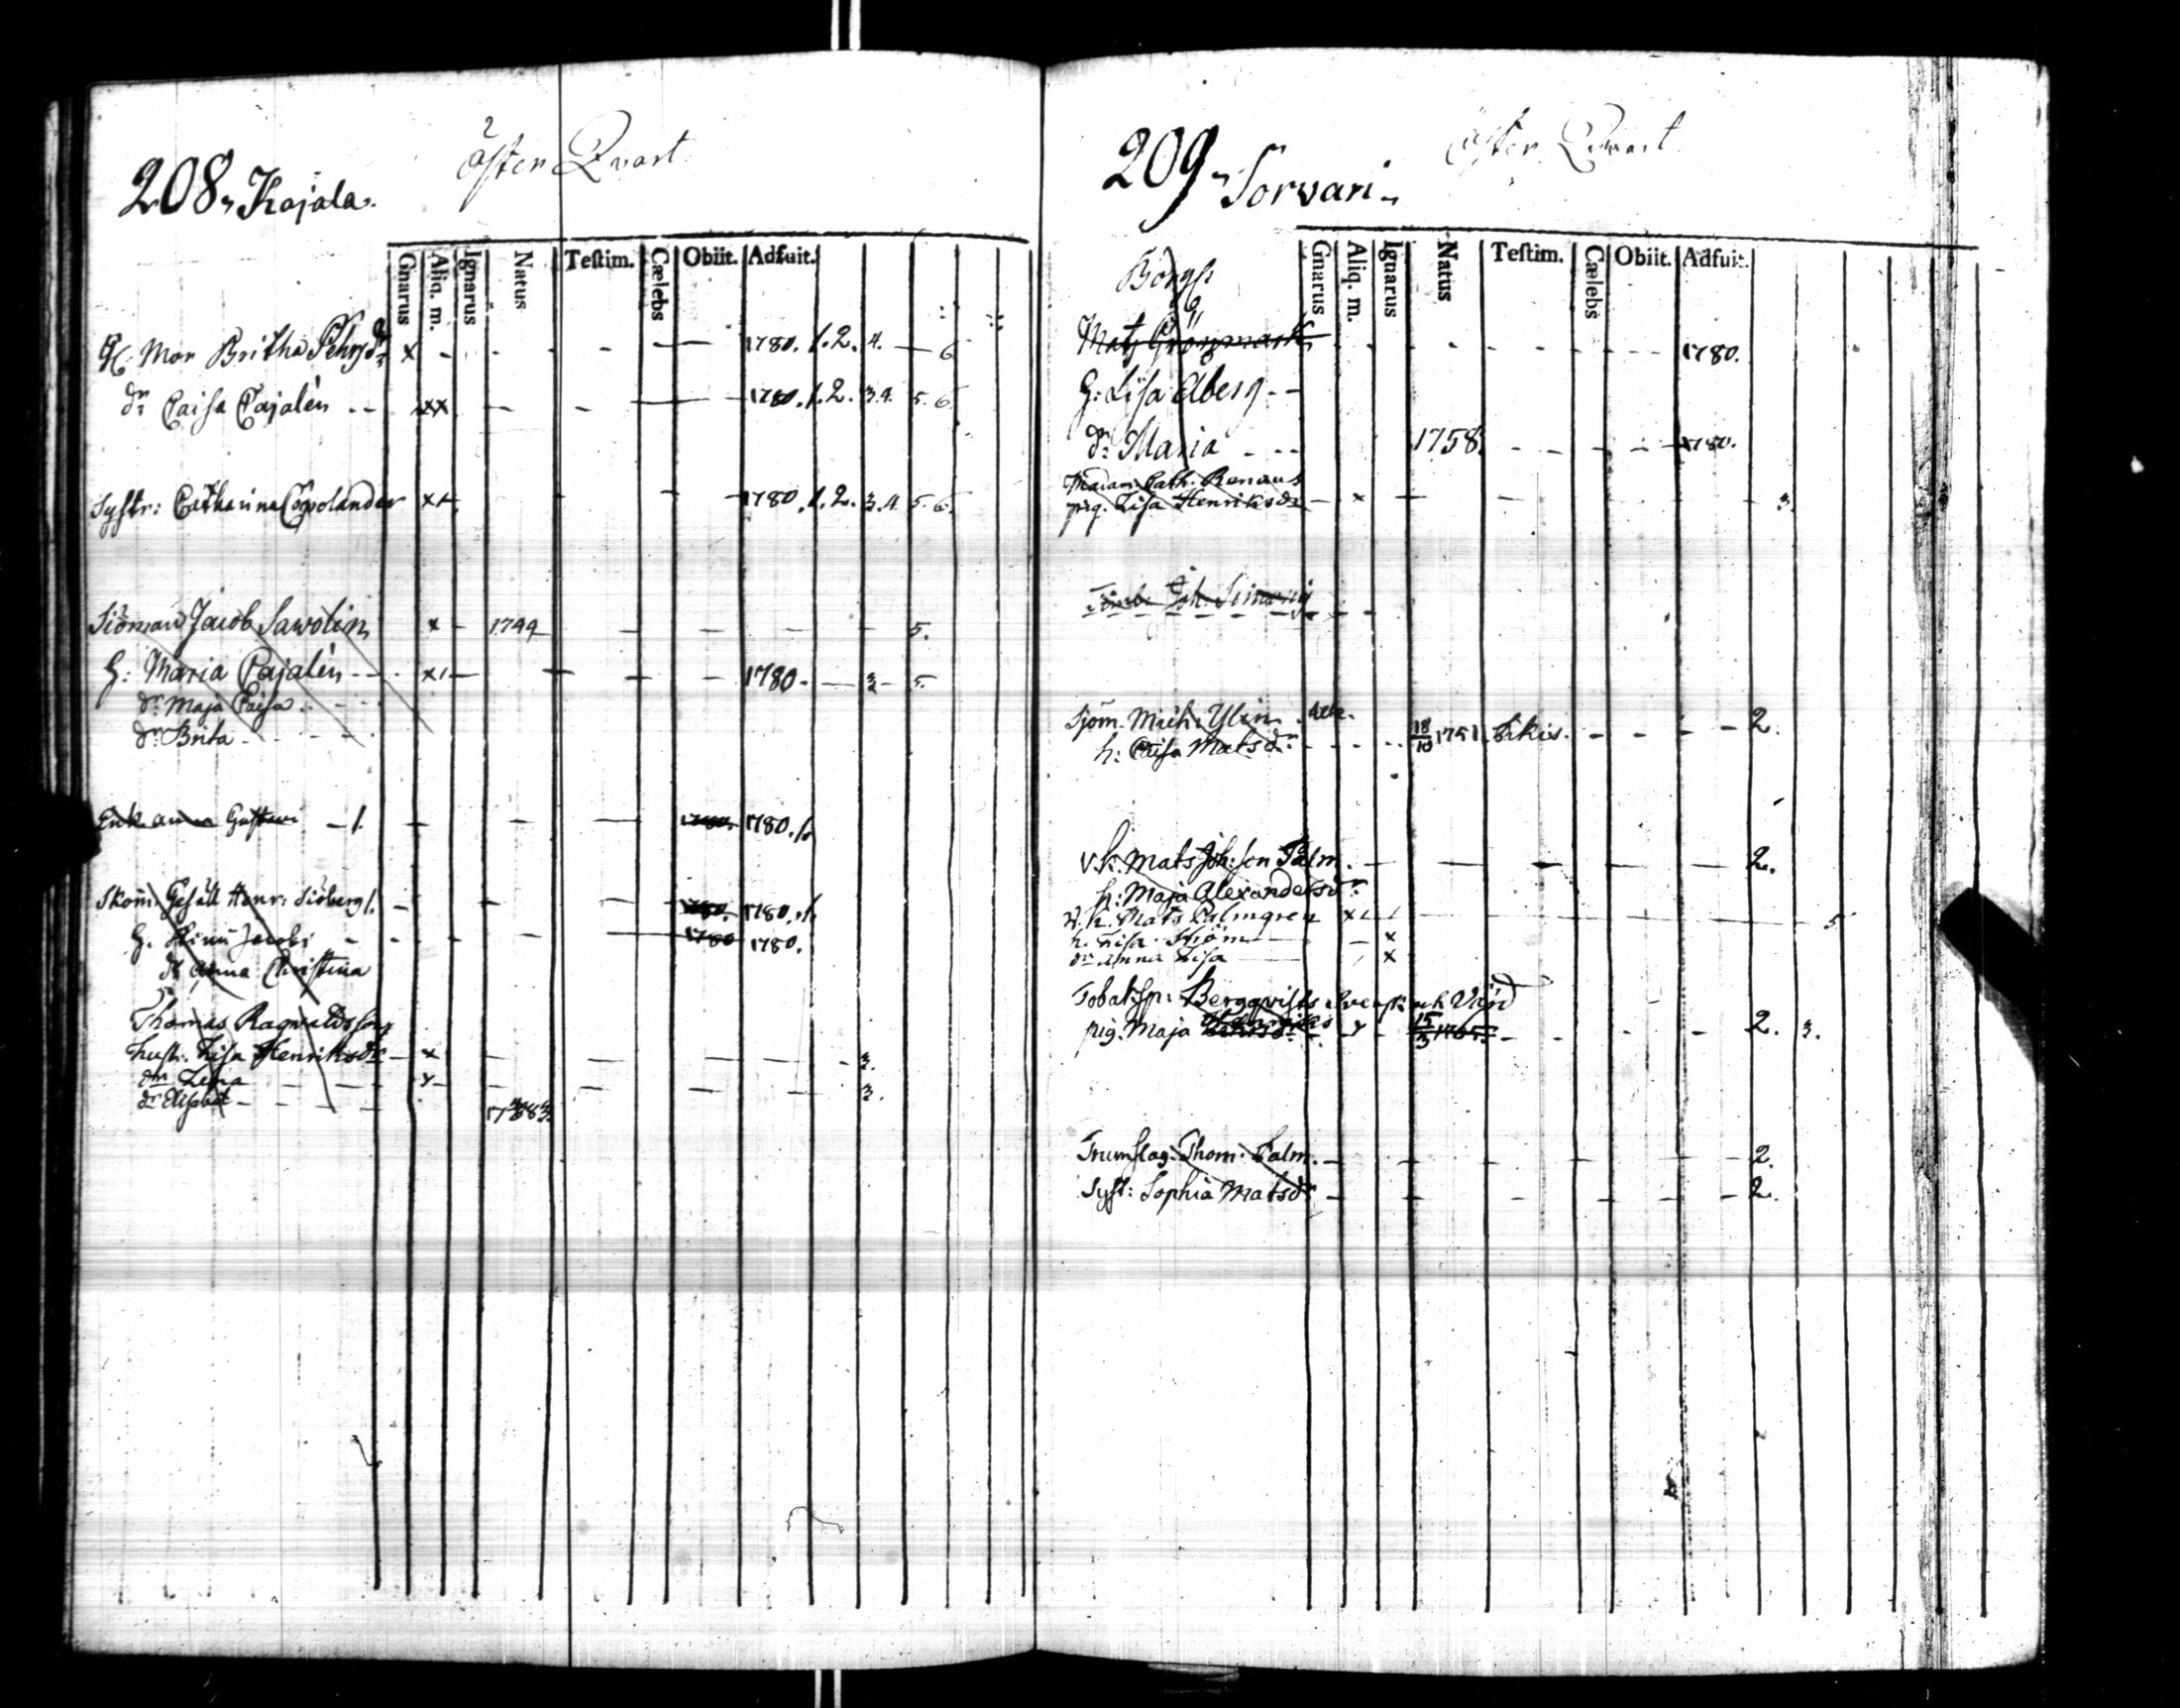 208, Kajala.
Öster Qvart
Gnarus Aliq. m. Ignarus Natus Testim. Cælebs Obiit. Adfuit.
Mor Britha Pehrsdr x 1780. 1. 2. 4. 6
dr Caisa Cajalén xx 1780. 1. 2. 3. 4. 5. 6
Systr: Catharina x 1780. 1. 2. 3. 4. 5. 6.
Siöman Jacob Sawolin x 1744 5.
H: Maria Cajalén x 1780 3 5.
dr Maja Caisa
dr Brita
Enk. Gustavi 1. 1780. 1780.
Skom: Gesäll Henr: Siöberg 1. 1780. 1780.
H. Jacobi 1780 1780.
dr Anna Christina
Thomas Ragwaldsson
hustr: Lisa Henriksdr x 3.
dr Lena x
dr Elisabet 3.
209, Sorvari
Öster Qwart
Gnarus Aliq. m. Ignarus Natus Testim. Cælebs Obiit. Adfuit.
Borgh:
Mats Grönmark 1780.
H: Lisa Åberg
dr Maria 1758. 1780.
Madam Cath: Renaus
pig. Lisa Henriksdr x 3.
Joh: Simonis
Sjöm. Mich: Ylin
h: Caisa Matsdr 18/10 1751. 2.
v. k. Mats Joh:son Palm 2.
h: Maja Alexandersdr
v. k. Mats Palmgren x 5
h. Lisa Ström x
dr Anna Lisa x
Tobak:sp: Bergqvists
pig. Maja 2. 3.
Trumslag: Thom: Palm 2.
Syst: Sophia Matsdr 2.